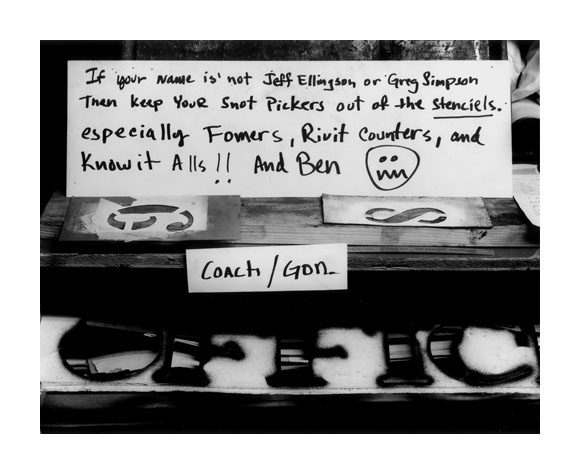 If your name is not Jeff Ellingson or Greg Simpson
Then keep your Snot Pickers out of the stenciels.
especially Fomers, Rivit Counters, and
Know it Alls!! And Ben
G
S
COACH/GON
OFFIC